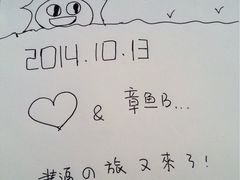 2014.10.13
& 章魚B...
の旅又來了!